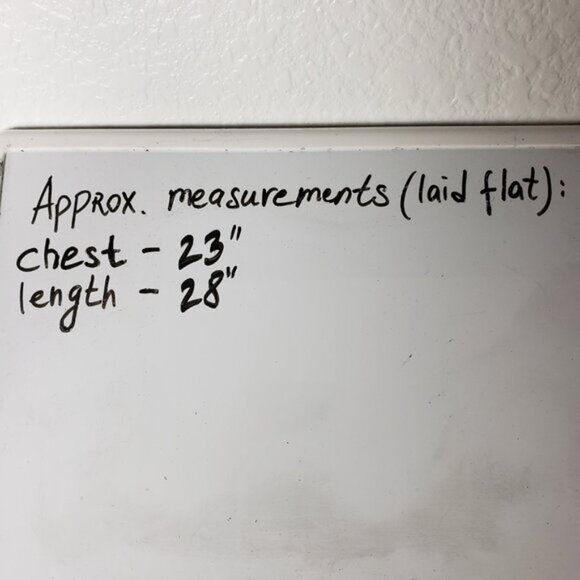 Approx. measurements (laid flat):
chest - 23"
length - 28"